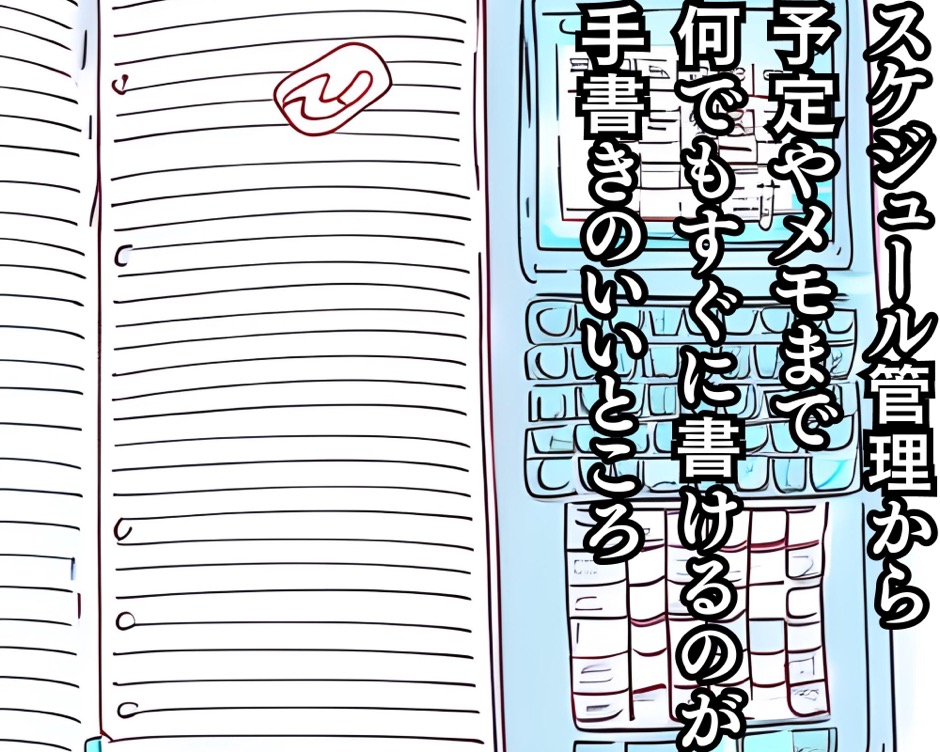 スケジュール管理から
予定やメモまで
何でもすぐに書けるのが
手書きのいいところ